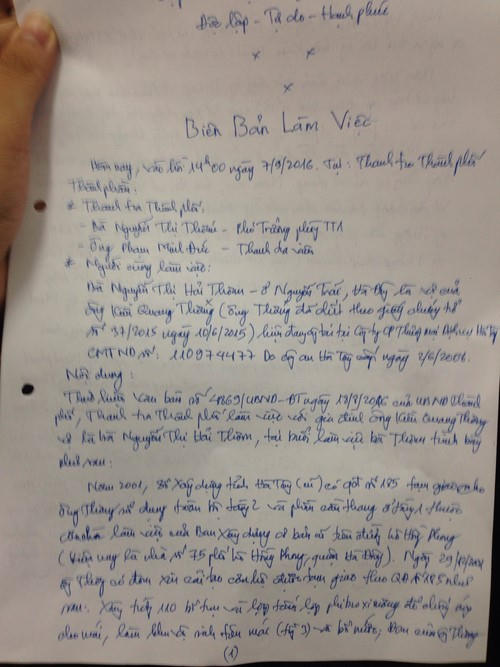 Độc lập - Tự do - Hạnh phúc
Biên Bản Làm Việc
Hôm nay, vào lúc 14h00 ngày 7/9/2016. Tại: Thanh tra Thành phố
Thành phần:
* Thanh tra Thành phố:
- Bà Nguyễn Thị Thơm - Phó Trưởng phòng TT1
- Ông Phạm Minh Đức - Thanh tra viên
* Người cùng làm việc:
Bà Nguyễn Thị Hải Thơm - ở Nguyễn Trãi, Hà Đông là vợ của
ông Kiều Quang Thường (ông Thường đã chết theo giấy chứng tử
số 37/2015 ngày 10/6/2015) hiện đang công tác tại Công ty CP Thương mại Hà Tây
CMTND số: 110974477 Do công an Hà Tây cấp ngày 2/6/2006.
Nội dung:
Thực hiện văn bản số 4869/UBND-ĐT ngày 18/8/2016 của UBND Thành
phố, Thanh tra Thành phố làm việc với gia đình ông Kiều Quang Thường
và bà Nguyễn Thị Hải Thơm, tại buổi làm việc bà Thơm trình bày
như sau:
Năm 2001, Sở Xây dựng tỉnh Hà Tây (cũ) có QĐ số 185 tạm giao cho
ông Thường sử dụng toàn bộ tầng 2 và phần cầu thang ở tầng 1 thuộc
làm việc của Ban Xây dựng cơ bản số trên đường Lê Hồng Phong
(hiện nay là nhà số 75 phố Lê Hồng Phong, quận Hà Đông). Ngày 29/10/2001
ông Thường có đơn xin cải tạo căn hộ được tạm giao theo QĐ số 185 như
sau: Xây tiếp 110 bổ trụ và lợp tấm lợp phibro xi măng để chống nóng
cho mái, làm khu vệ sinh trên mái (tầng 3) và bể nước, Đơn của ông Thường
(1)